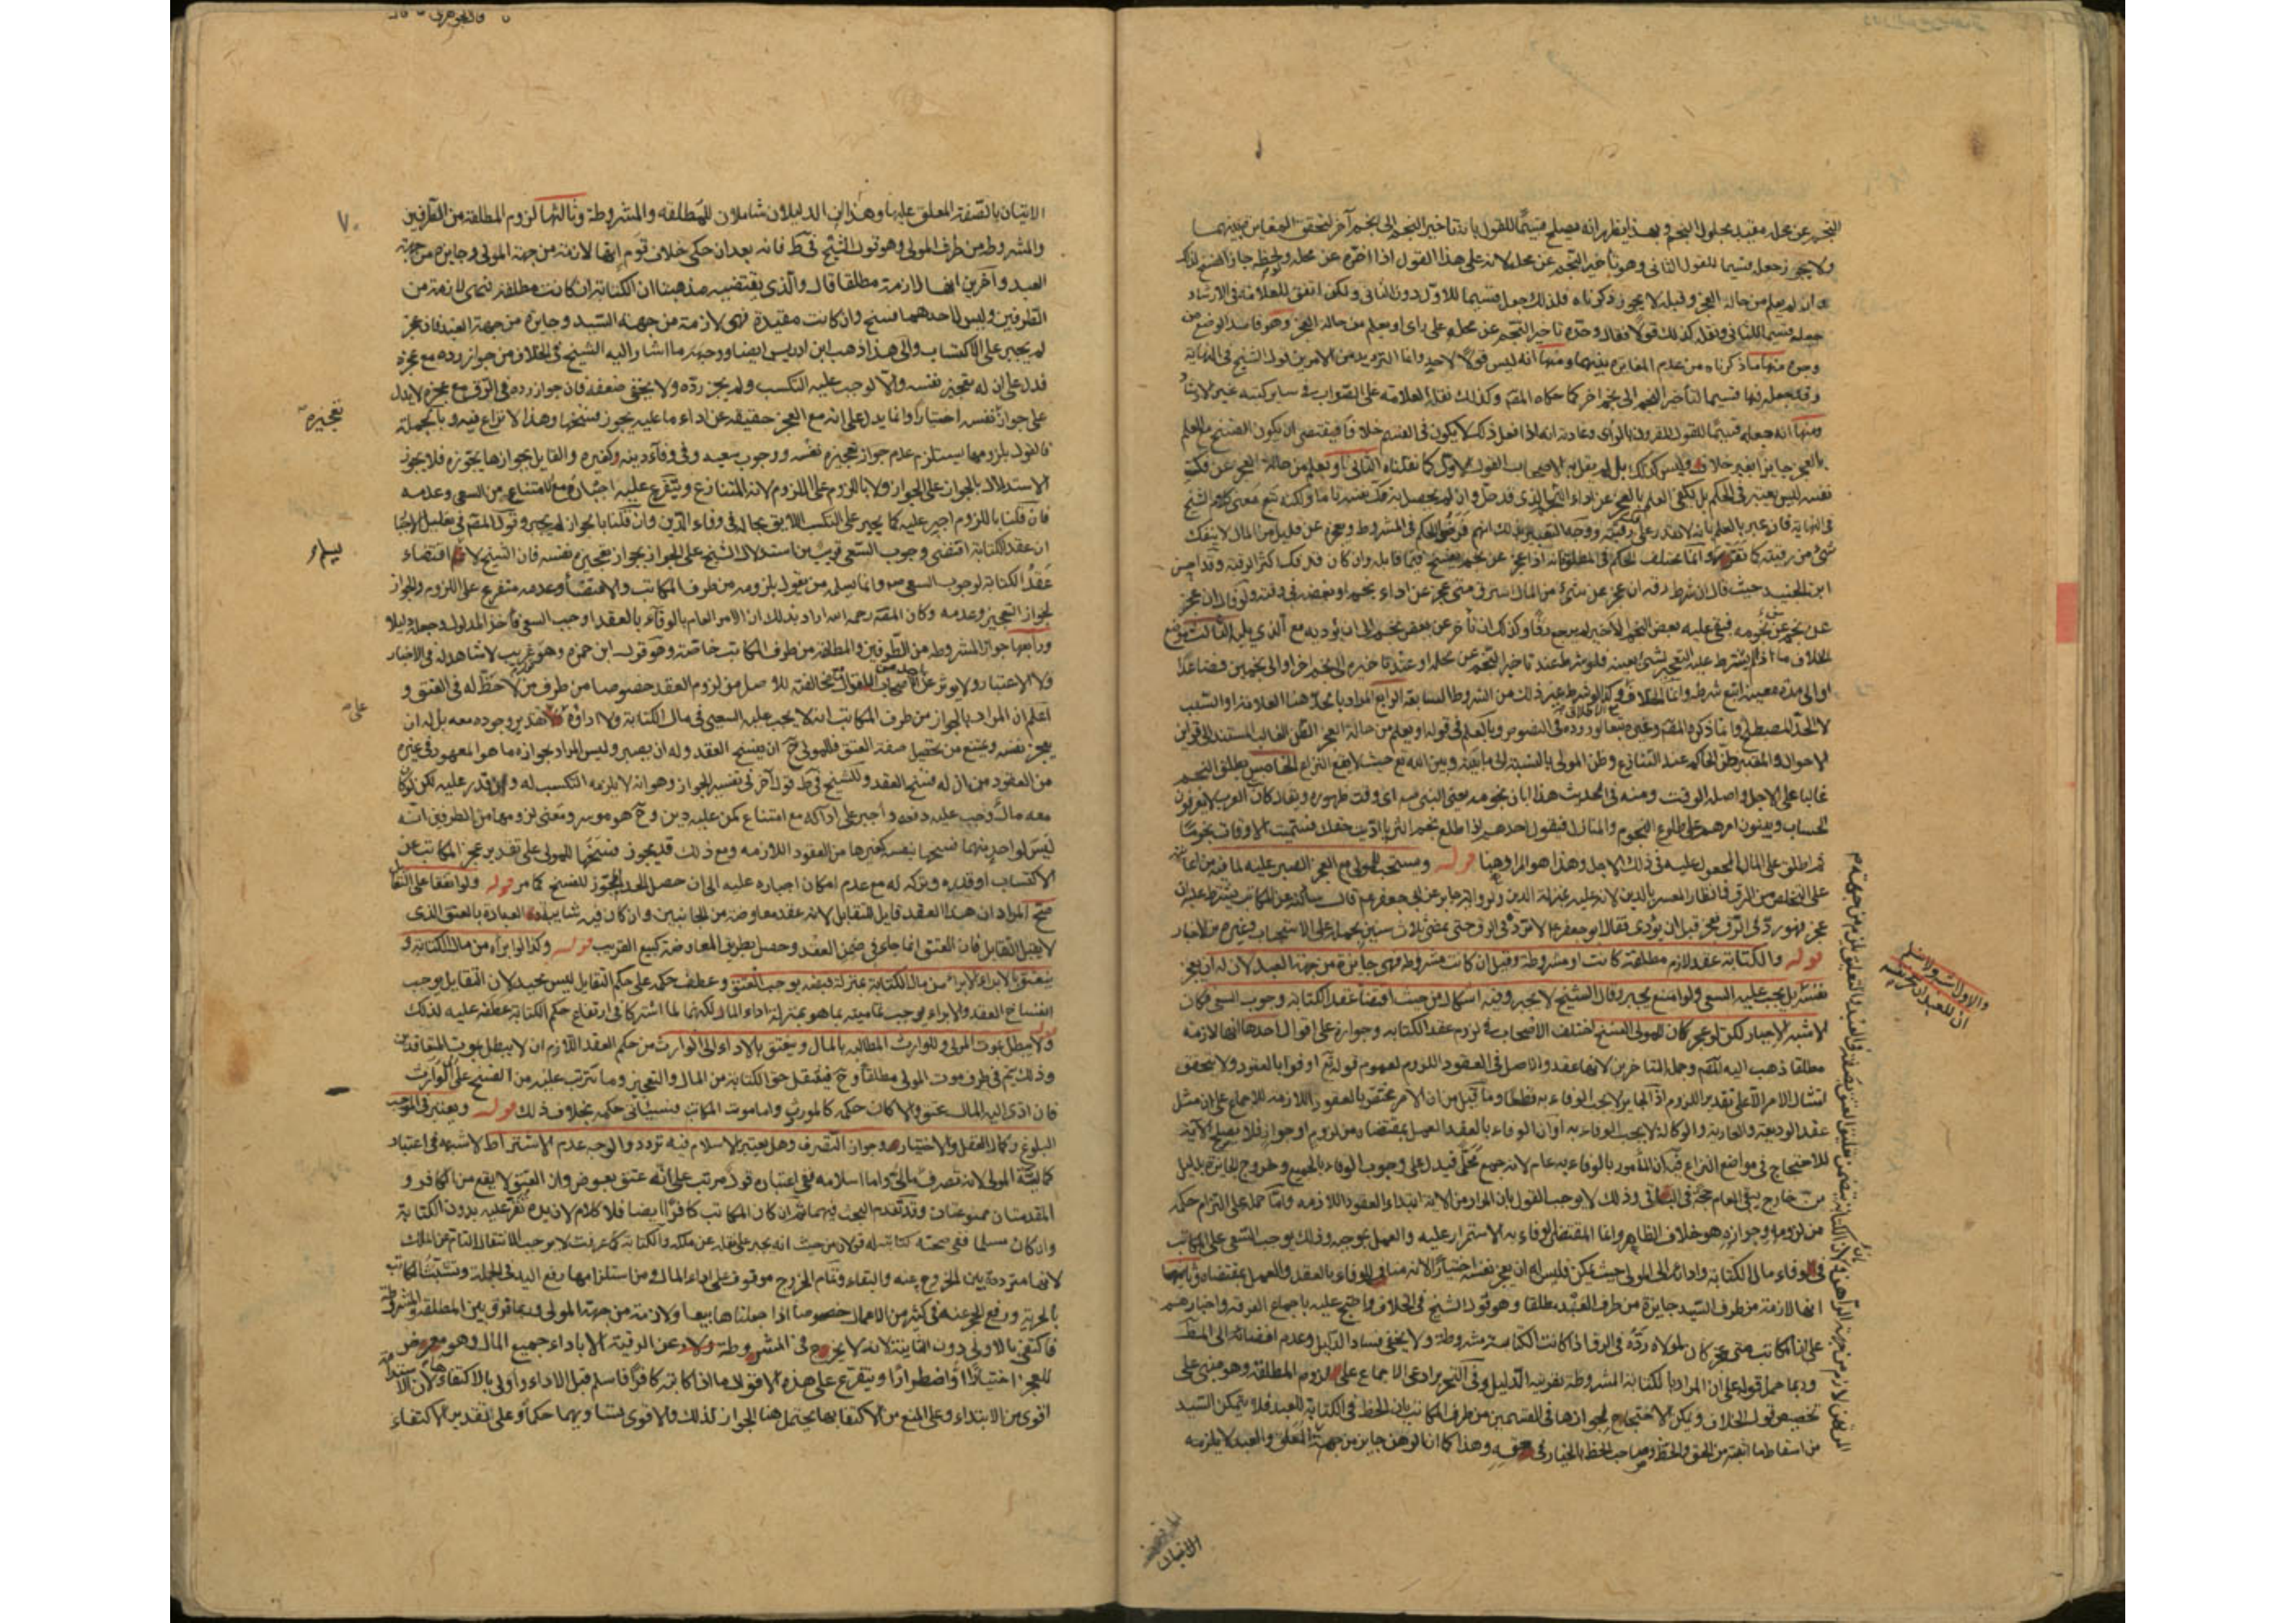 النجم عن محله مقيد بحلول النجم وبهذا يظهر انه يصلح قسيما للقول بانه تاخير النجم الى نجم آخر لتحقق التغاير بينهما
ولا يجوز جعله قسيما للقول الثاني وهو تاخير النجم عن محله لانه على هذا القول اذا اخره عن محله ولحظة جاز الفسخ
وان لم يعلم من حاله العجز وقبله لا يجوز ذكرناه فلذلك جعل قسيما للاول دون الثاني ولكن اتفق للعلامة في الارشاد
جعله قسيما للثاني ونقله كذلك قولا فقال وحده تاخير النجم عن محله على راى او يعلم من حاله العجز وهو فاسد الوضع من
وجوه منها ما ذكرناه من عدم المغايرة بينهما ومنها انه ليس قولا لاحد وانما الترديد من الامرين قول الشيخ في النهاية
وقد جعله فيها قسيما لتأخير النجم الى نجم اخر كما حكاه المص وكذلك نقله العلامة على الصواب في ساير كتبه غير الارشاد
ومنها انه جعله قسيما للقول المقرون بالراى وعادته انه اذا فعل ذلك لا يكون في القسم خلاف فيقتضى ان يكون الفسخ مع العلم
بالعجز جايزا بغير خلاف وليس كذلك بل لم يقل به الاصحاب القول الاول كما نقلناه الثاني او يعلم من حاله العجز عن فك
نفسه ليس بمعتبر في الحكم بل يكفى العلم بالعجز عن اداء النجم الذى قد حل وان لم يحصل به فك نفسه تاما ولكنه تبع معنى كلام الشيخ
في النهاية فانه عبر بالعلم بانه لا يقدر على فك رقبته ووجه التعبير بذلك انهم فرضوا الحكم في المشروط وبعجزه عن قليل من المال لا ينفك
شئ من رقبته كما تقرر وانما يختلف الحكم في المطلق فانه اذا عجز عن نجم يفسخ فيما قابله وان كان قد فك اكثر الرقبة وقد احسن
ابن الجنيد حيث قال ان شرط رقه ان عجز عن شئ من المال استرق متى عجز عن اداء نجم او بعضه في وقته ولو قال ان عجز
عن نجم من نجومه فبقى عليه بعض النجم الاخير لم يرجع رقا وكذلك ان تأخر عن بعض نجم الى ان يؤديه مع الذى يليه الثالث موضع
الخلاف ما اذا لم يشترط عليه التعجيز بشئ بعينه فلو شرط عند تاخير النجم عن محله او عند تاخيره الى نجم اخر او الى نجمين فصاعدا
او الى مدة معينة اتبع شرطه
لا الحد المصطلح وانما ذكره المص وغيره تبعا لوروده في النصوص وبالعلم في قوله او يعلم من حاله العجز الظن الغالب المستند الى قراين
الاحوال والمعتبر ظن الحاكم عند التنازع وظن المولى بالنسبة الى ما بينه وبين الله تع حيث لا يقع النزاع الخامس يطلق النجم
غالبا على الاجل واصله الوقت ومنه في الحديث هذا ابان نجومه يعنى النبى صه اى وقت ظهوره ويقال كان العرب لا يعرفون
الحساب ويبنون امرهم على طلوع النجوم والمنازل فيقول احدهم اذا طلع نجم الثريا اديت حقك فسميت الاوقات نجوما
ثم اطلق على المال المجعول عليه في ذلك الاجل وهذا هو المراد هنا قوله ويستحب للمولى مع العجز الصبر عليه لما فيه من اعانته
على التخلص من الرق فانظار المعسر بالدين لانه عليه بمنزلة الدين ولرواية جابر عن ابى جعفر عم قال سألته عن المكاتب يشترط عليه ان
عجز فهو رد في الرق فعجز قبل ان يؤدى فقال ابو جعفر عم لا ترده في الرق حتى يمضى ثلاث سنين يحمله على الاستحباب وغيره من الاخبار
قوله والكتابة عقد لازم مطلقة كانت او مشروطة وقيل ان كانت مشروطة فهى جايزة من جهة العبد لان له ان يعجز
نفسه بل يجب عليه السعى ولو امتنع يجبر وقال الشيخ لا يجبر وفيه اشكال من حيث اقتضاء عقد الكتابة وجوب السعى فكان
الاشبه الاجبار لكن لو عجز كان للمولى الفسخ اختلف الاصحاب في لزوم عقد الكتابة وجوازه على اقوال احدها انها لازمة
مطلقا ذهب اليه المص وجملة المتاخرين لانها عقد والاصل في العقود اللزوم لعموم قوله تع اوفوا بالعقود ولا يتحقق
امتثال الامر الا على تقدير اللزوم اذ الجايز لا يجب الوفاء به قطعا وما قيل من ان الامر مختص بالعقود اللازمة للاجماع على ان مثل
عقد الوديعة والعارية والوكالة لا يجب الوفاء به او ان الوفاء بالعقد العمل بمقتضاه من لزوم او جواز فلا يصلح الآية
للاحتجاج في مواضع النزاع فيه ان المأمور بالوفاء به عام لانه جمع محلى فيدل على وجوب الوفاء بالجميع وخروج الجايزة بدليل
من خارج يبقى العام حجة في الباقى وذلك لا يوجب القول بان المراد من الاية ابتداء العقود اللازمة واما حمله على التزام حكمه
من لزومه وجوازه هو خلاف الظاهر وانما المقتضى للوفاء به الاستمرار عليه والعمل بموجبه وذلك يوجب السعى على المكاتب
في الوفاء مال الكتابة وادائه الى المولى حيث يمكن فليس له ان يعجز نفسه اختيارا لانه مناف للوفاء بالعقد والعمل بمقتضاه وثانيها
انها لازمة من طرف السيد جايزة من طرف العبد مطلقا وهو قول الشيخ في الخلاف واحتج عليه باجماع الفرقة واخبارهم
على ان المكاتب متى عجز كان لمولاه رده في الرق اذا كانت الكتابة مشروطة ولا يخفى فساد الدليل وعدم افضائه الى المط
وربما حمل قوله على ان المراد بالكتابة المشروطة بقرينة الدليل وفي التحرير ادعى الاجماع على لزوم المطلقة وهو مبنى على
تخصيص قول الخلاف ويمكن الاحتجاج لجوازها في القسمين من طرف المكاتب بان الحظ في الكتابة للعبد فلا يتمكن السيد
من اسقاط ما اثبته من الحق والحظ وصاحب الحظ بالخيار في حقه وهذا كما ان الرهن جايز من جهة
والاول اشبه ولا نسلم
ان للعبد ان يعجز نفسه
الاتيان
٧٠
الاتيان بالصفة المعلق عليها وهذان الدليلان شاملان للمطلقة والمشروطة وثالثها لزوم المطلقة من الطرفين
والمشروطة من طرف المولى وهو قول الشيخ في ط فانه بعد ان حكى خلاف قوم انها لازمة من جهة المولى وجايزة من جهة
العبد وآخرين انها لازمة مطلقا قال والذى يقتضيه مذهبنا ان الكتابة ان كانت مطلقة فهى لازمة من
الطرفين وليس لاحدهما فسخ وان كانت مقيدة فهى لازمة من جهة السيد وجايزة من جهة العبد فان عجز
لم يجبر على الاكتساب والى هذا ذهب ابن ادريس ايضا ووجهه ما اشار اليه الشيخ في الخلاف من جواز رده مع عجزه
فدل على ان له تعجيز نفسه والا لوجب عليه التكسب ولم يجز رده ولا يخفى ضعفه فان جواز رده في الرق مع عجزه لا يدل
على جواز نفسه اختيارا وانما يدل على انه مع العجز حقيقة عن اداء ما عليه يجوز فسخها وهذا لا نزاع فيه وبالجملة
تعجيزه
فالقول بلزومها يستلزم عدم جواز تعجيزه نفسه ووجوب سعيه وفي وفاء دينه وكغيره والقايل بجوازها يجوزه فلا يجوز
الاستدلال بالجواز على الجواز ولا باللزوم على اللزوم لانه المتنازع ويتفرع عليه اجباره مع الامتناع من السعى وعدمه
فان قلنا باللزوم اجبر عليه كما يجبر على التكسب اللايق بحاله في وفاء الدين وان قلنا بالجواز لم يجبر وقول المص في تعليل الاجبار
ان عقد الكتابة اقتضى وجوب السعى قريب من استدلال الشيخ على الجواز بجواز تعجيزه نفسه فان الشيخ لا اقتضاء
عقد الكتابة لوجوب السعى وانما يسلمه من يقول بلزومه من طرف المكاتب والاقتضاء وعدمه متفرع على اللزوم والجواز
لجواز التعجيز وعدمه وكان المص رحمه الله اراد بذلك ان الامر العام بالوفاء بالعقد اوجب السعى فأخذ المدلول وجعله دليلا
ورابعها جواز المشروطة من الطرفين والمطلقة من طرف المكاتب خاصة وهو قول ابن حمزه وهو غريب لا شاهد له في الاخبار
ولا الاعتبار مخالفته للاصل من لزوم العقد خصوصا من طرف من لا حظ له في العتق و
على
اعلم ان المراد بالجواز من طرف المكاتب انه لا يجب عليه السعى في مال الكتابة ولا اداؤه تقدير وجوده معه بل له ان
يعجز نفسه ويمتنع من تحصيل صفة العتق فللمولى ح ان يفسخ العقد وله ان يصبر وليس المراد بجوازه ما هو المعهود في غيره
من العقود من ان له فسخ العقد وللشيخ في ط قول آخر في تفسير الجواز وهو انه لا يلزمه التكسب له وان قدر عليه لكن لو كان
معه مال وجب عليه دفعه واجبر على ادائه مع امتناع كمن عليه دين وح هو موسر ومعنى لزومها من الطرفين انه
ليس لواحد منهما فسخها بنفسه كغيرها من العقود اللازمة ومع ذلك قد يجوز فسخها للمولى على تقدير عجز المكاتب عن
الاكتساب او قدره وتركه له مع عدم امكان اجباره عليه الى ان حصل الحد المجوز للفسخ كما مر قوله ولو اتفقا على التقايل
صح المراد ان هذا العقد قابل للتقايل لانه عقد معاوضة من الجانبين وان كان فيه شايبة العبادة بالعتق الذى
لا يقبل التقايل فان العتق انما جاء في ضمن العقد وحصل بطريق المعاوضة كبيع القريب قوله وكذا لو ابرأه من مال الكتابة و
ينعتق بالابراء الابراء من مال الكتابة بمنزلة قبضه يوجب العتق وعطف حكمه على حكم التقايل ليس بجيد لان التقايل يوجب
انفساخ العقد والابراء يوجب تماميته بما هو بمنزلة اداء المال لكنهما لما اشتركا في ارتفاع حكم الكتابة عطفه عليه لذلك
ولا يبطل بموت المولى وللوارث المطالبة بالمال وينعتق بالاداء الى الوارث من حكم العقد اللازم ان لا يبطل بموت المتعاقدين
وذلك يتم في طرف موت المولى مطلقا وح فينتقل حق الكتابة من المال والتعجيز وما يترتب عليه من الفسخ على الوارث
فان ادى اليه المال عتق والا كان حكمه كالمورث واما موت المكاتب فسيأتى حكمه بخلاف ذلك قوله ويعتبر في الموجب
البلوغ وكمال العقل والاختيار وجواز التصرف وهل يعتبر الاسلام فيه تردد والوجه عدم الاشتراط لا شبهة في اعتبار
كمالية المولى لانه تصرف مالى واما اسلامه ففى اعتباره قول مرتب على انه عتق بعوض وان العتق لا يقع من الكافر و
المقدمتان ممنوعتان وقد تقدم البحث فيهما ثم ان كان المكاتب كافرا ايضا فلا كلام لان يده تقر عليه بدون الكتابة
وان كان مسلما ففى صحته كتابته له قولان من حيث انه يجبر على نقله عن ملكه والكتابة كما عرفت لا يوجب الانتقال التام عن الملك
لانها مترددة بين الخروج عنه والبقاء وتمام الخروج موقوف على اداء المال ومن استلزامها رفع اليد في الجملة وتشبث المكاتب
بالحرية ورفع الحجر عنه في كثير من الاعمال خصوصا اذا جعلناها بيعا ولازمة من جهة المولى وربما فرق بين المطلقة والمشروطة
فاكتفى بالاولى دون الثانية لانه لا يخرج في المشروطة عن الرقية الا باداء جميع المال وهو معرض
للعجز اختيارا او اضطرارا ويتفرع على هذه الاقوال ما اذا كاتبه كافرا فاسلم قبل الاداء واولى بالاكتفاء هنا لان الاستدامة
اقوى من الابتداء وعلى المنع من الاكتفا بها يحتمل هنا الجواز لذلك والاقوى تساويهما حكما وعلى تقدير الاكتفاء